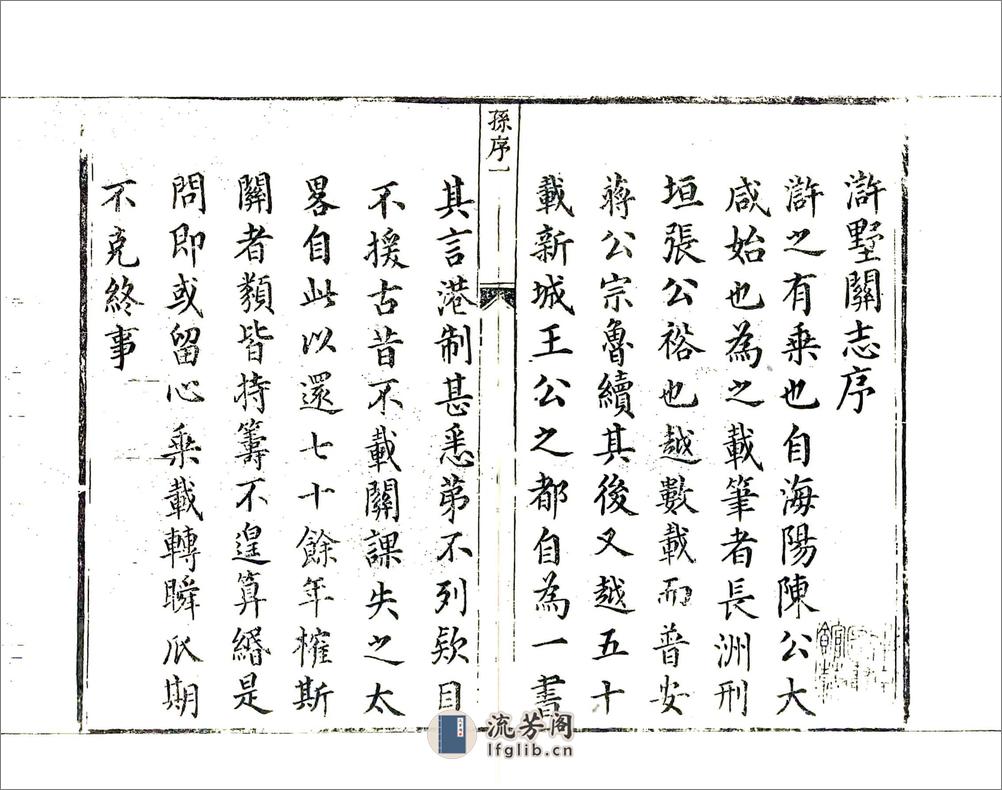 滸墅關志序
滸之有乗也自海陽陳公大
咸始也為之載筆者長洲刑
垣張公裕也越數載而普安
蔣公宗魯續其後又越五十
載新城王公之都自為一書
孫序一
其言港制甚悉第不列欵目
不援古昔不載關課失之太
畧自此以還七十餘年榷斯
關者類皆持籌不遑算緡是
問即或留心乗載轉瞬瓜期
不克終事
流芳阁
lfglib.cn